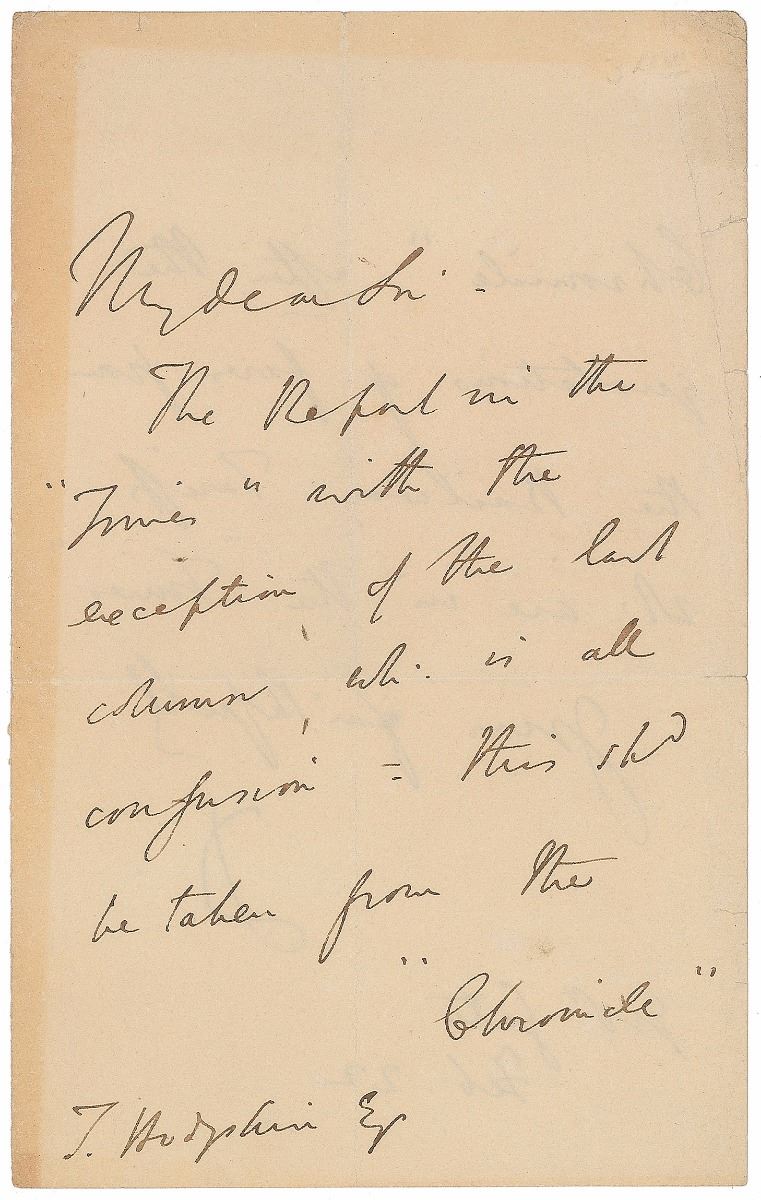 My dear Sir -
The Report in the
"Times" with the
exception of the last
column, wh. is all
confusion - this shd
be taken from the
"Chronicle"
T. Hodgskin Esq